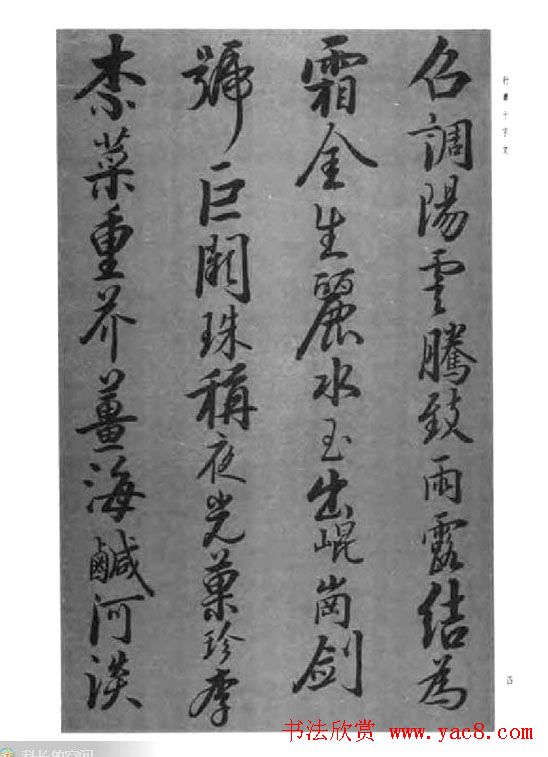 名調陽雲騰致雨露結為
霜金生麗水玉出崐崗剑
號巨闕珠稱夜光菓珍李
柰菜重芥薑海鹹河淡
行書千字文
15
书法欣赏
www.yac8.com
科长的空间